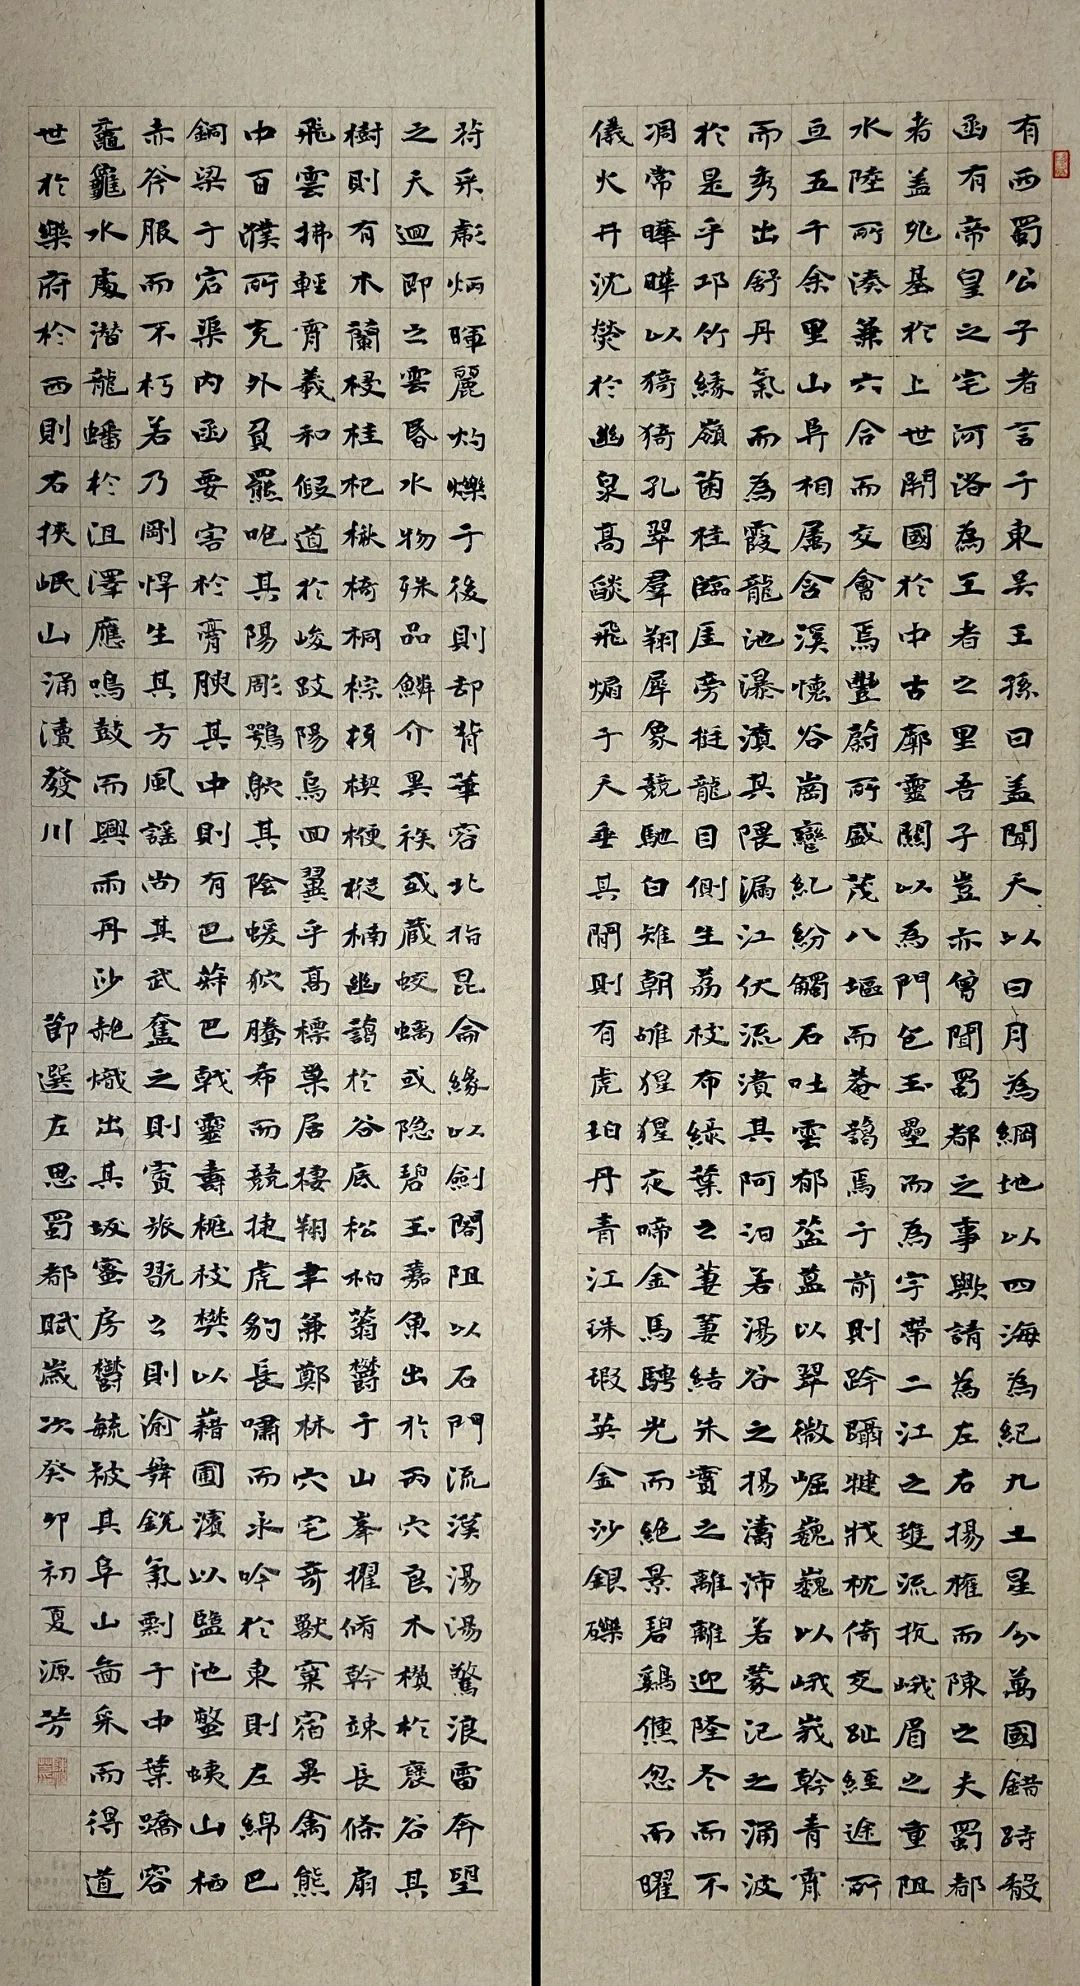 有西蜀公子者言于東吳王孫曰蓋聞天以日月為綱地以四海為紀九土星分萬國錯跱殽
函有帝皇之宅河洛為王者之里吾子豈亦曾聞蜀都之事歟請為左右揚榷而陳之夫蜀都
者蓋兆基於上世開國於中古廓靈關以為門包玉壘而為宇帶二江之雙流抗峨眉之重阻
水陸所湊兼六合而交會焉豐蔚所盛茂八區而菴藹焉于前則跨躡犍牂枕倚交趾經途所
亘五千余里山阜相属含溪懷谷崗巒紀紛觸石吐雲郁葐蒀以翠微崛巍巍以峨峩幹青霄
而秀出舒丹氣而為霞龍池瀑濆其隈漏江伏流潰其阿汩若湯谷之揚濤沛若蒙汜之涌波
於是乎邛竹緣嶺菌桂臨崖旁挺龍目側生荔枝布綠葉之萋萋結朱實之離離迎隆冬而不
凋常曄曄以猗猗孔翠羣翔犀象競馳白雉朝雊猩猩夜啼金馬騁光而絕景碧鷄儵忽而曜
儀火井沈熒於幽泉高燄飛煽于天垂其間則有虎珀丹青江珠瑕英金沙銀礫
符采彪炳暉麗灼爍于後則却背華容北指昆侖緣以劍閣阻以石門流漢湯湯驚浪雷奔望
之天迴即之雲昏水物殊品鱗介異族或藏蛟螭或隐碧玉嘉魚出於丙穴良木攢於褒谷其
樹則有木蘭梫桂杞楸椅桐棕枒楔楩樅楠幽藹於谷底松柏蓊鬱于山峯擢脩幹竦長條扇
飛雲拂輕霄羲和假道於峻跂陽烏回翼乎高標巢居棲翔聿兼鄭林穴宅奇獸窠宿異禽熊
中百濮所充外負羆咆其陽彫鶚鴥其陰蝯狖騰希而競捷虎豹長嘯而永吟於東則左綿巴
銅梁于宕渠內函要害於膏腴其中則有巴菽巴戟靈壽桃枝樊以藉圃濱以鹽池蟞蛦山栖
赤斧服而不朽若乃剛悍生其方風謠尚其武奮之則賨旅翫之則渝舞銳氣剽于中葉蹻容
黿龜水處潜龍蟠於沮澤應鳴鼓而興雨丹沙赩熾出其坂蜜房鬱毓被其阜山啚采而得道
世於樂府於西則右挾岷山涌瀆發川 節選左思蜀都賦歲次癸卯初夏源芳